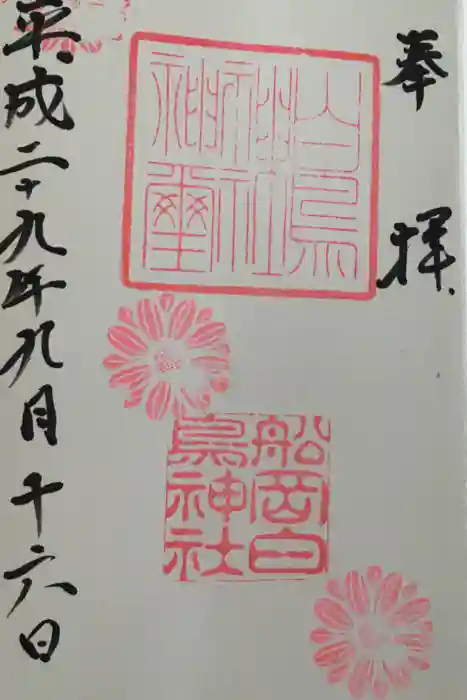 奉拝
白鳥
神社
神璽
船岡白
鳥神社
平成二十九年九月十六日